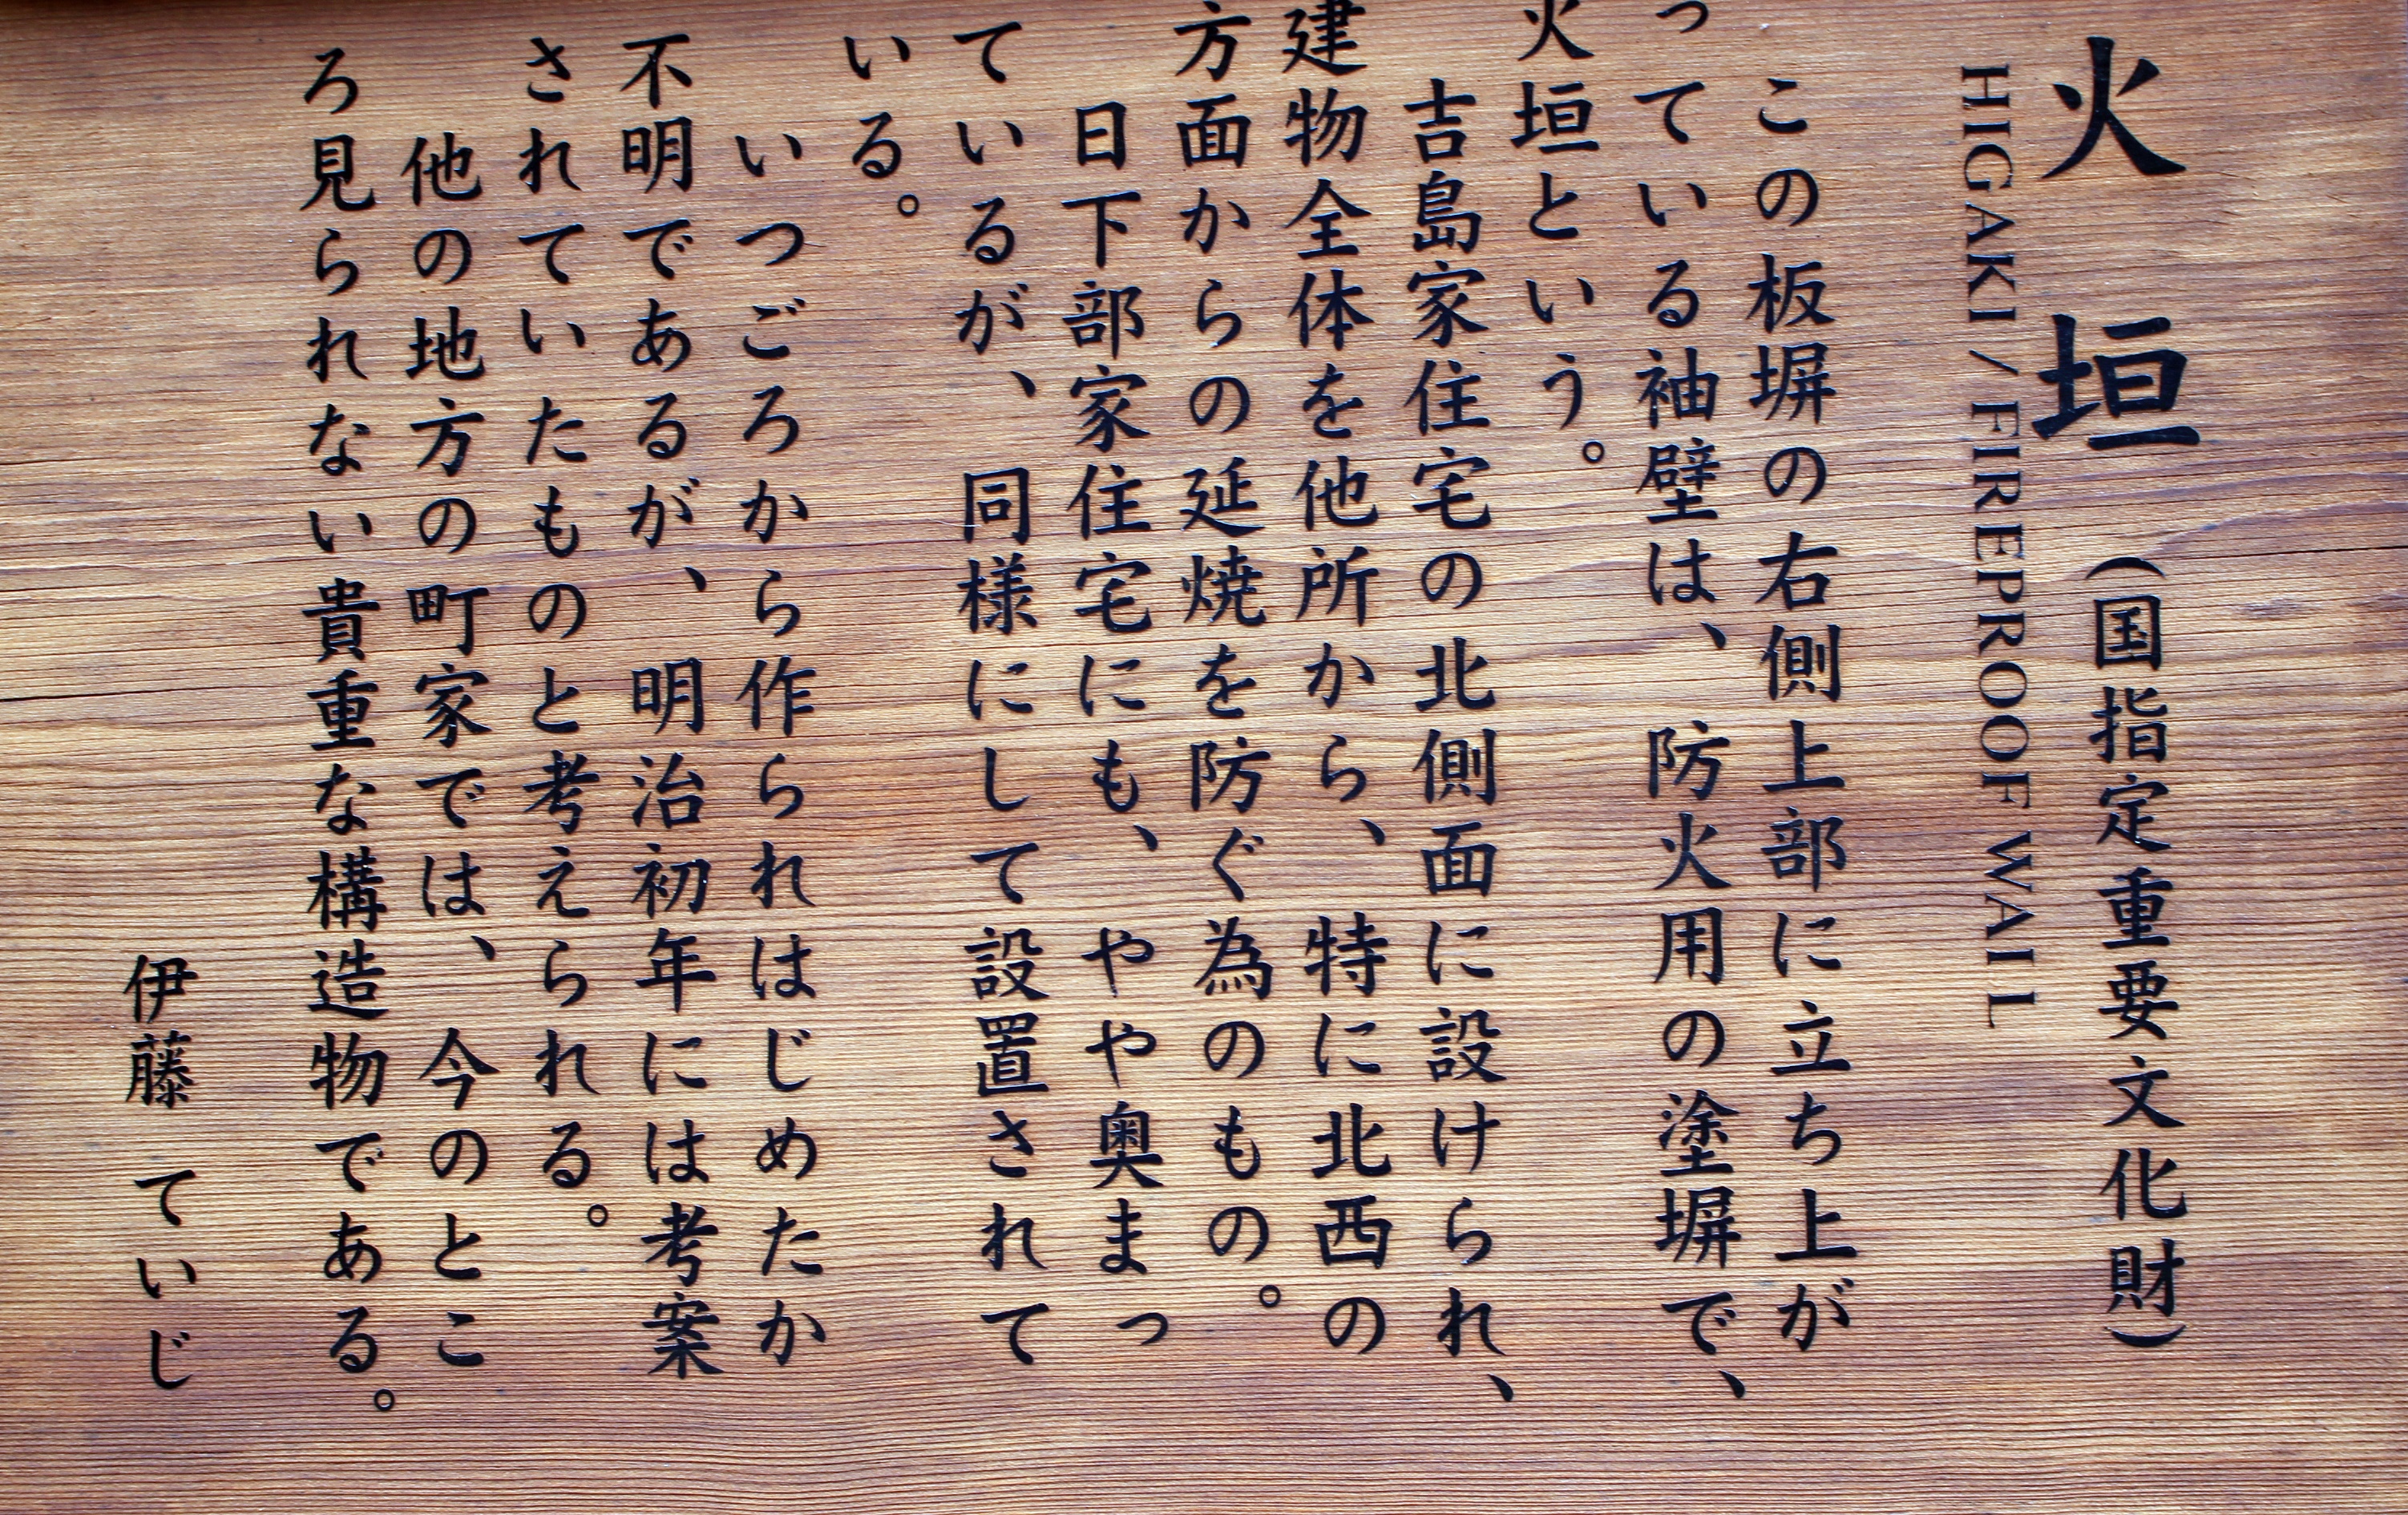 火垣(国指定重要文化財)
HIGAKI/FIREPROOF WALL
この板塀の右側上部に立ち上が
っている袖壁は、防火用の塗塀で、
火垣という。
吉島家住宅の北側面に設けられ、
建物全体を他所から、特に北西の
方面からの延焼を防ぐ為のもの。
日下部家住宅にも、やや奥まっ
ているが、同様にして設置されて
いる。
いつごろから作られはじめたか
不明であるが、明治初年には考案
されていたものと考えられる。
他の地方の町家では、今のとこ
ろ見られない貴重な構造物である。
伊藤ていじ